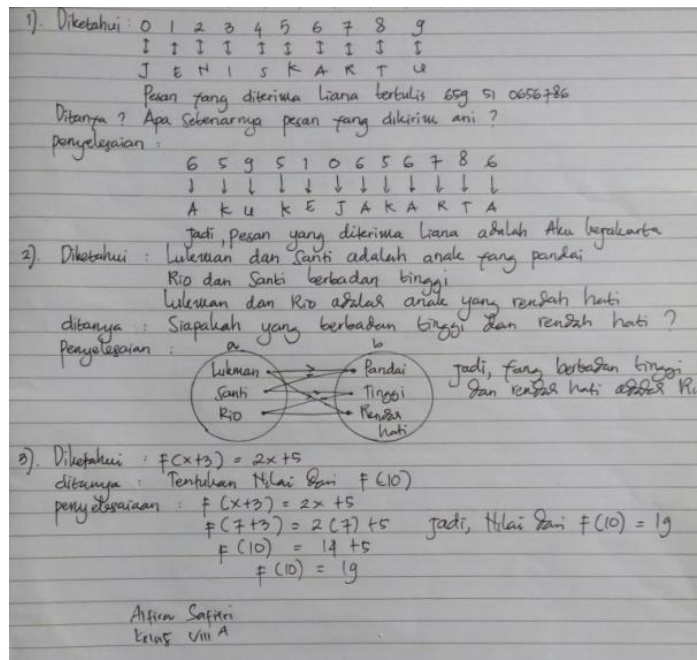 1). Diketahui : 0 1 2 3 4 5 6 7 8 9
↕ ↕ ↕ ↕ ↕ ↕ ↕ ↕ ↕ ↕
J E N I S K A R T U
Pesan yang diterima Liana tertulis 659 51 0656786
Ditanya ? Apa Sebenarnya pesan yang dikirim ani ?
penyelesaian :
6 5 9 5 1 0 6 5 6 7 8 6
↓ ↓ ↓ ↓ ↓ ↓ ↓ ↓ ↓ ↓ ↓ ↓
A K U K E J A K A R T A
Jadi, pesan yang diterima Liana adalah Aku kejakarta
2). Diketahui : Lukman dan Santi adalah anak yang pandai
Rio dan Santi berbadan tinggi
Lukman dan Rio adalah anak yang rendah hati
ditanya : Siapakah yang berbadan tinggi dan rendah hati ?
Penyelesaian :
a b
Lukman Pandai
Santi Tinggi
Rio Rendah hati
Jadi, yang berbadan tinggi
dan rendah hati adalah Ri
3). Diketahui : F(x+3) = 2x+5
ditanya : Tentukan Nilai dari F(10)
penyelesaiaan : F(x+3) = 2x+5
F(7+3) = 2(7)+5 Jadi, Nilai dari F(10) = 19
F(10) = 14+5
F(10) = 19
Safitri
Kelas VIII A